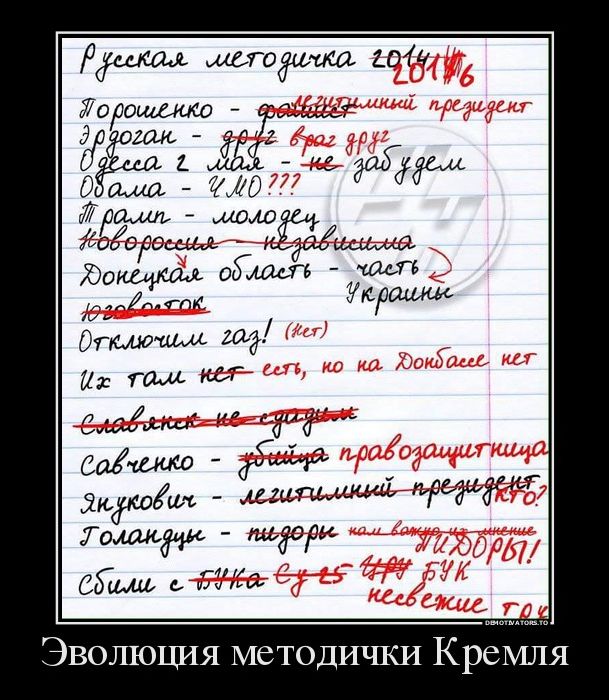 Русская методичка 2014 2016
Порошенко - фашист легитимный президент
Эрдоган - друг враг друг
Одесса 2 мая - не забудем
Обама - ЧМО???
Трамп - молодец
Новороссия - независима
Донецкая область - часть
Украины
Юговосток
Отключим газ! (Нет)
Их там нет есть, но на Донбассе нет
Славянск не сдадим
Савченко - убийца правозащитница
Янукович - легитимный президент кто?
Голандцы - пидоры нам важно их мнение
ПИДОРЫ!
Сбили с БУКа Су-25 ЦРУ БУК
несвежие тру
DEMOTIVATORS.TO
Эволюция методички Кремля